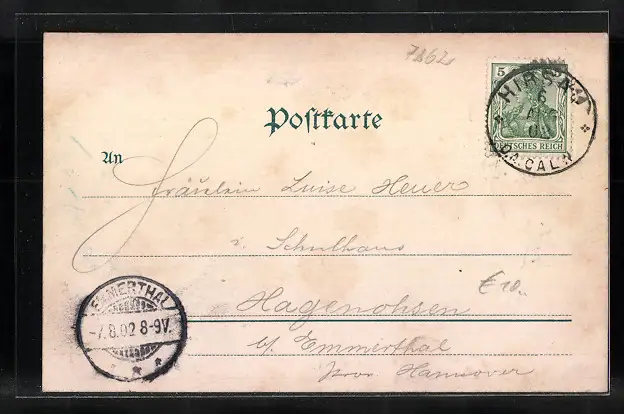 7862
5
DEUTSCHES REICH
HIRSAU
6
O.A. CALW
Postkarte
An
Fräulein Luise Heuer
i. Schulhaus
Hagenohsen
€ 10.-
b/ Emmerthal
Prov Hannover
EMMERTHAL
-7.8.02 8-9V.